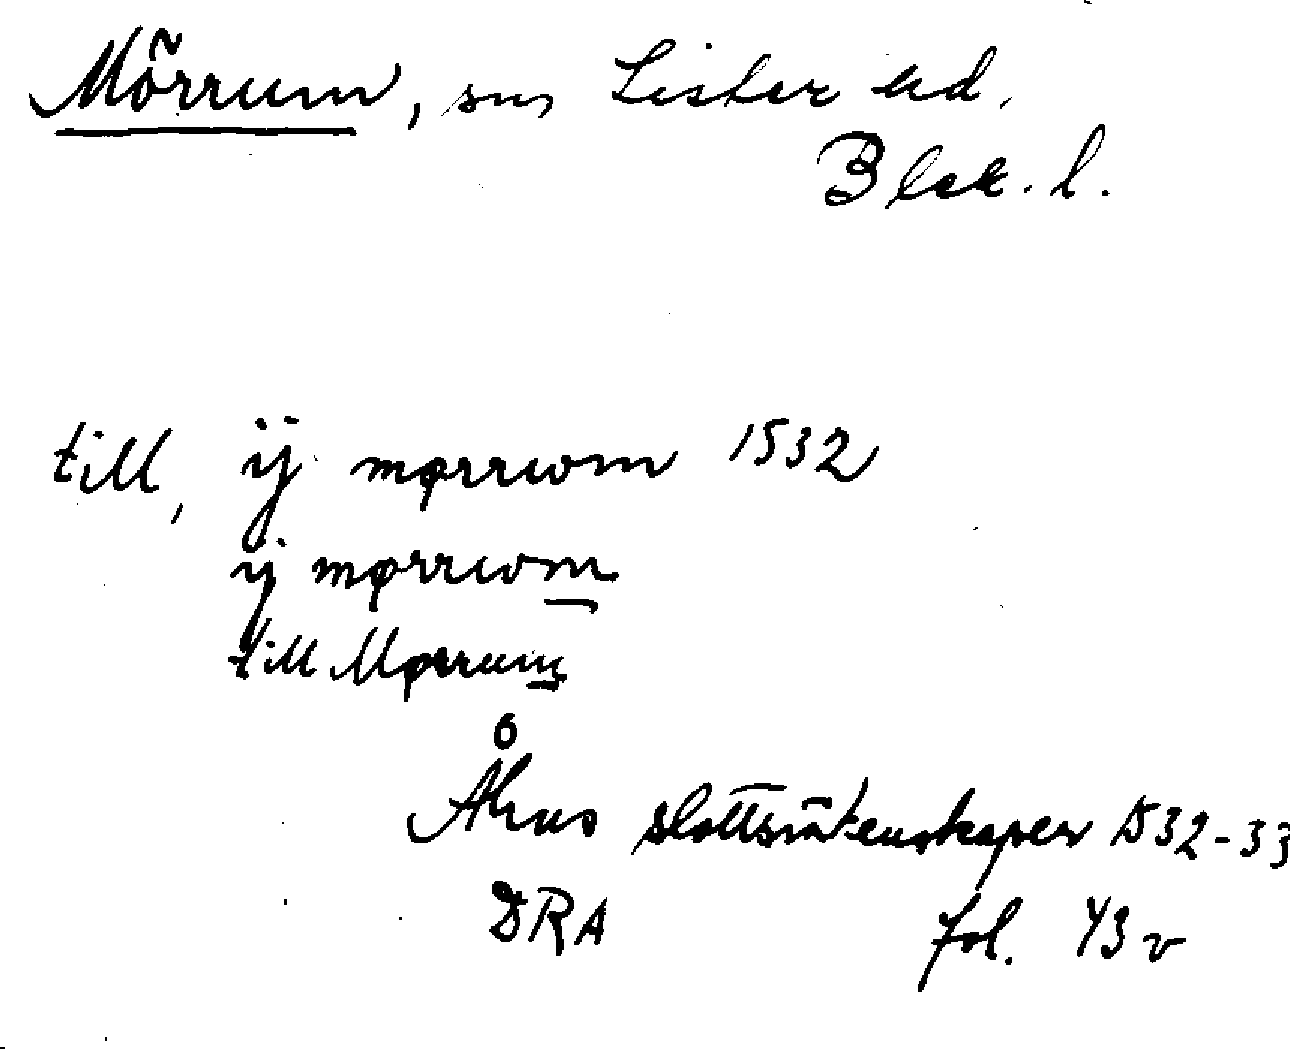 Mörrum, sn, Lister hd,
Blek. l.
till, ij mørrwm 1532
ij mørrwm
till Mørrum
Åhus slottsräkenskaper 1532-33
DRA fol. 43 v